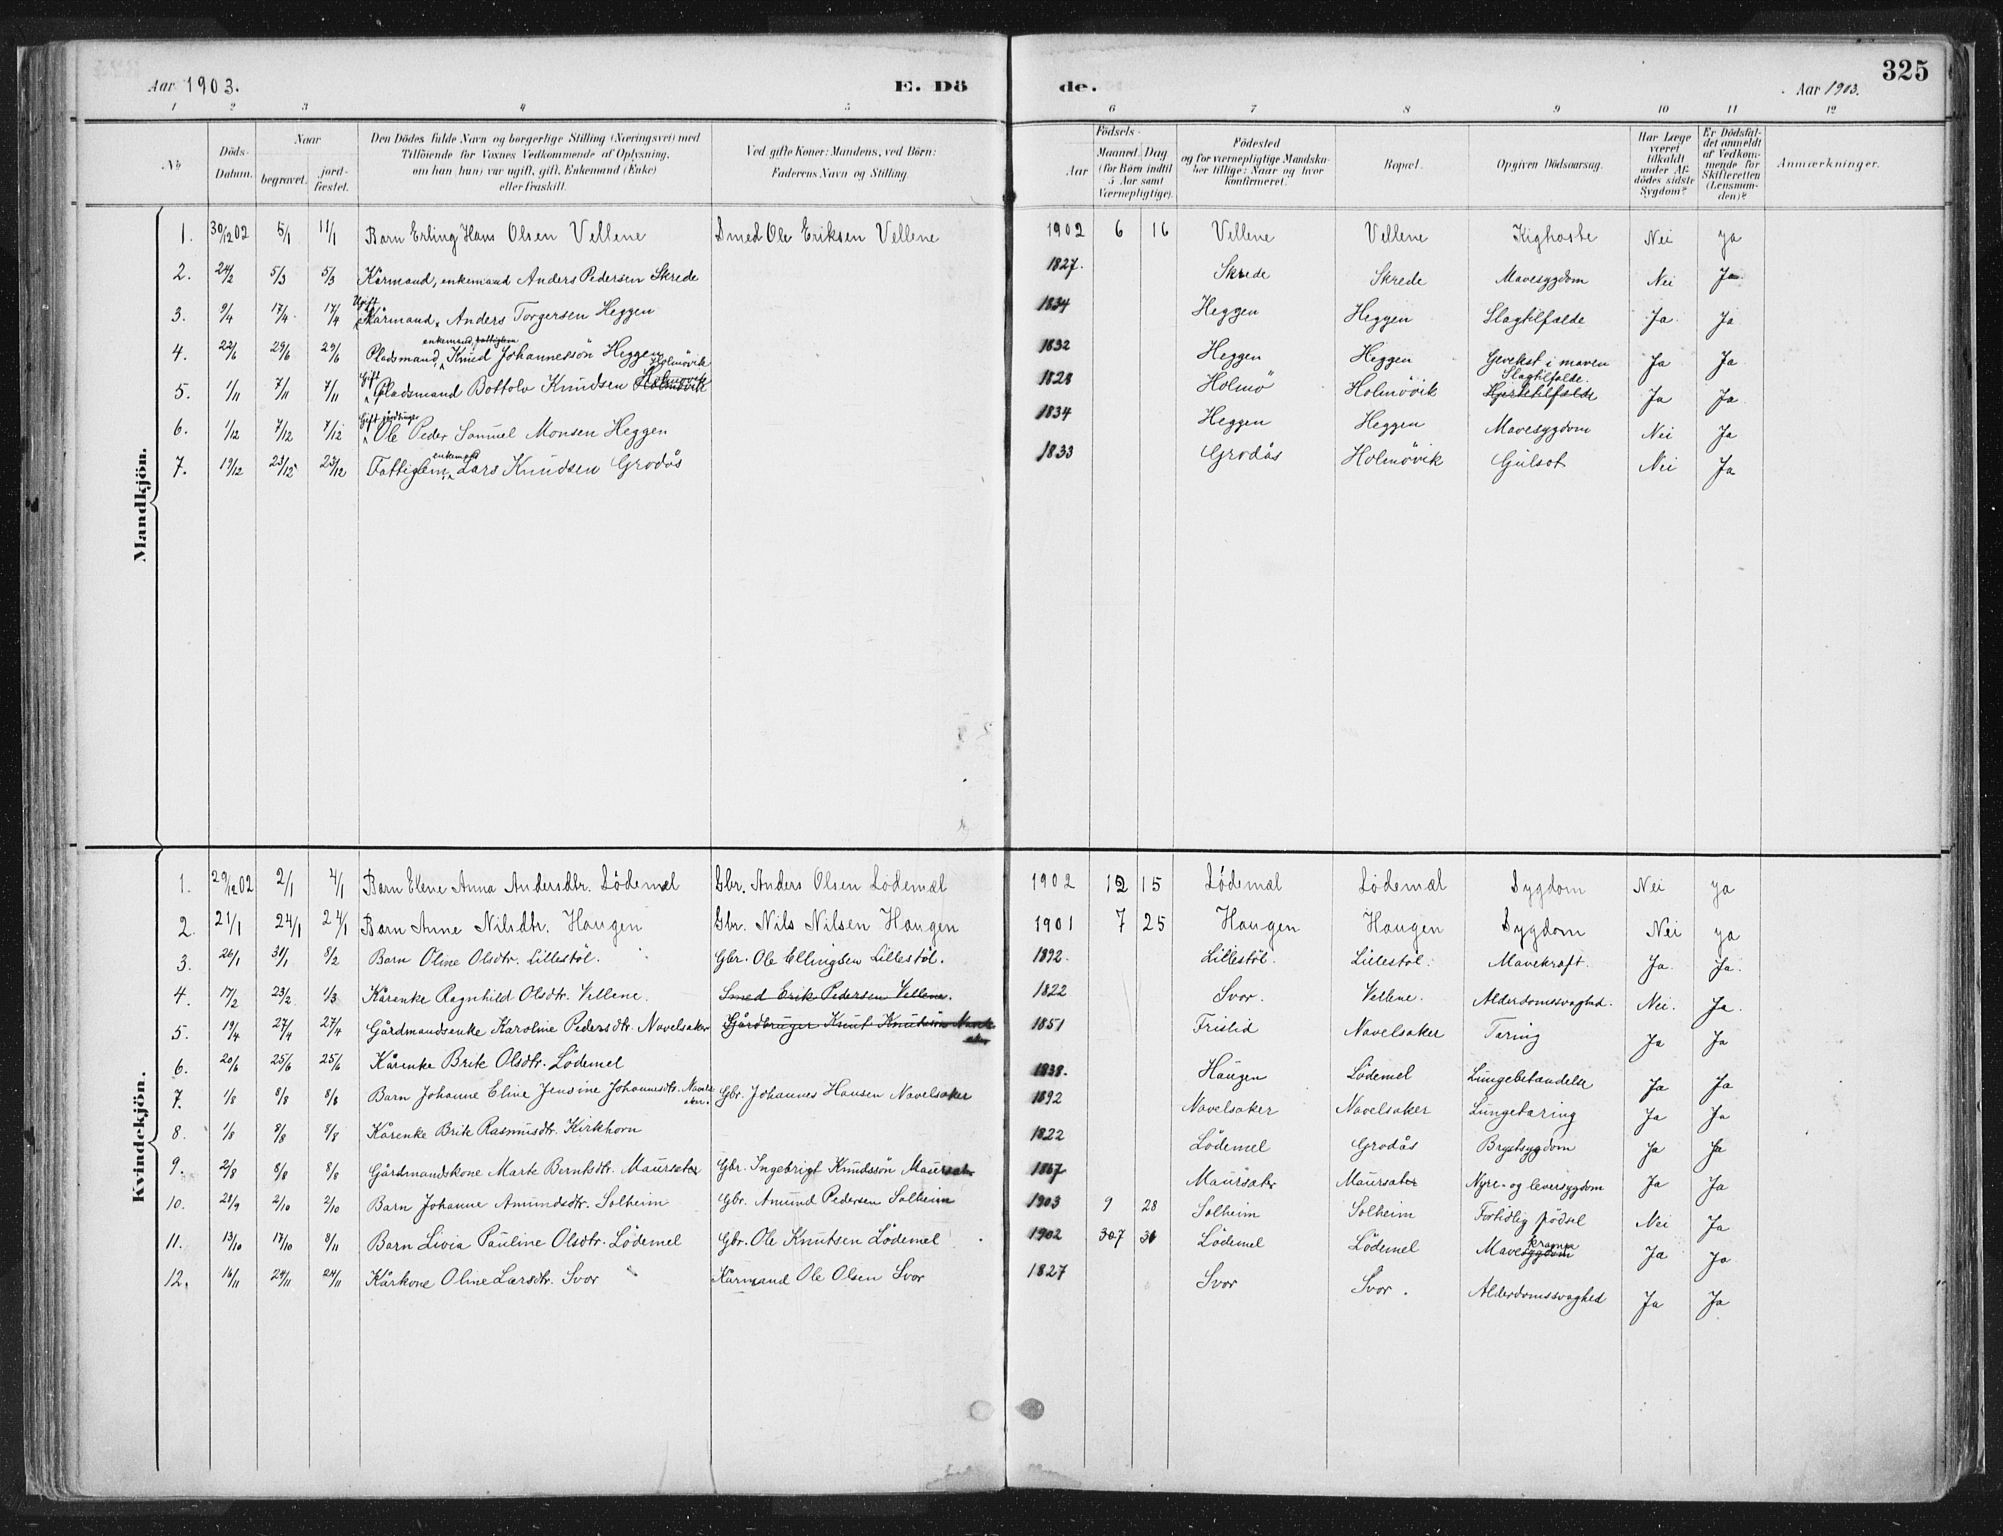 Aar 1903. E. Dö de. Aar 1903. 325
1 2 3 4 5 6 7 8 9 10 11 12
No Döds-Datum. Naar begravet. jord-fæstet. Den Dödes fulde Navn og borgerlige Stilling (Næringsvei) med Tilföiende for Voxnes Vedkommende af Oplysning, om han (hun) var ugift, gift, Enkemand (Enke) eller fraskilt. Ved gifte Koner: Mandens, ved Börn: Faderens Navn og Stilling. Födsels- Aar Maaned Dag (for Børn indtil 5 Aar samt Værnepligtige). Födested og for værnepligtige Mandska-ber tillige: Naar og hvor konfirmeret. Bopæl. Opgiven Dödsaarsag. Har Læge været tilkaldt under Af-dødes sidste Sygdom? Er Dödsfal-det anmeldt af Vedkom-mende for Skifteretten (Lensman-den)? Anmærkninger.
Mandkjön.
1. 30/12 02 5/1 11/1 Barn Erling Hans Olsen Vellene Smed Ole Eriksen Vellene 1902 6 16 Vellene Vellene Kighoste Nei ja
2. 24/2 5/3 5/3 Kårmand, enkemand Anders Pedersen Skrede 1827. Skrede Skrede Mavesygdom Nei Ja
3. 9/4 17/4 17/4 Ugift Kårmand, Anders Torgersen Heggen 1834 Heggen Heggen Slagtilfælde Ja Ja
4. 22/6 29/6 29/6 Pladsmand, enkemand, fattiglem Knud Johannessön Heggen 1832 Heggen Heggen Gevekst i maven Ja Ja
5. 1/11 7/11 7/11 Gift Pladsmand Bottolv Knudsen Holmövik Holmövik 1828 Holmö Holmövik Slagtilfælde. Hjertetilfælde Ja Ja
6. 1/12 7/12 7/12 Gift gårdbruger Ole Peder Samuel Monsen Heggen 1834 Heggen Heggen Mavesygdom Nei Ja
7. 19/12 23/12 23/12 Fattiglem, enkemand Lars Knudsen Grodås 1833 Grodås Holmövik Gulsot Nei Ja
Kvindekjön.
1. 29/12 02 2/1 4/1 Barn Elene Anna Andersdtr. Lödemæl Gbr. Anders Olsen Lödemæl 1902 12 15 Lödemæl Lödemæl Sygdom Nei ja
2. 21/1 24/1 24/1 Barn Anne Nilsdtr. Haugen Gbr. Nils Nilsen Haugen 1901 7 25 Haugen Haugen Sygdom Nei ja
3. 26/1 31/1 8/2 Barn Oline Olsdtr. Lillestöl. Gbr. Ole Ellingsen Lillestöl. 1892. Lillestöl. Lillestöl. Mavekræft. Ja. Ja.
4. 17/2 23/2 1/3 Kårenke Ragnhild Olsdtr. Vellene. Smed Erik Pedersen Vellene. 1822 Svor. Vellene. Alderdomssvaghed. Nei. Ja.
5. 19/4 27/4 27/4 Gårdmandsenke Karoline Pedersdtr. Navelsaker Gårdbruger Knut Knutsen Navelsaker 1851 Fristid Navelsaker Tæring Ja Ja
6. 20/6 25/6 25/6 Kårenke Brite Olsdtr. Lödemel 1838. Haugen Lödemel Lungebetændelse Ja Ja
7. 1/8 8/8 8/8 Barn Johanne Eline Jensine Johannesdtr. Navelsaker. Gbr. Johannes Hansen Navelsaker 1892 Navelsaker Navelsaker Lungetæring Ja Ja
8. 1/8 8/8 8/8 Kårenke Brite Rasmusdtr. Kirkhorn 1822 Lödemel Grodås Brystsygdom Ja Ja
9. 2/8 8/8 8/8 Gårdmandskone Marte Berntsdtr. Maursæter Gbr. Ingebrigt Knudssön Maursæter 1867 Maursæter Maursæter Nyre- og leversygdom Ja Ja
10. 28/9 2/10 2/10 Barn Johanne Amundsdtr. Solheim Gbr. Amund Pedersen Solheim 1903 9 28 Solheim Solheim Fortidlig födsel Nei Ja
11. 13/10 17/10 8/11 Barn Livia Pauline Olsdtr. Lödemel Gbr. Ole Knutsen Lödemel 1902 7 Lödemel Lödemel Mavesygdom krampe Ja Ja
12. 16/11 24/11 24/11 Kårkone Oline Larsdtr. Svor Kårmand Ole Olsen Svor 1827 Svor Svor. Alderdomssvaghed Ja Ja